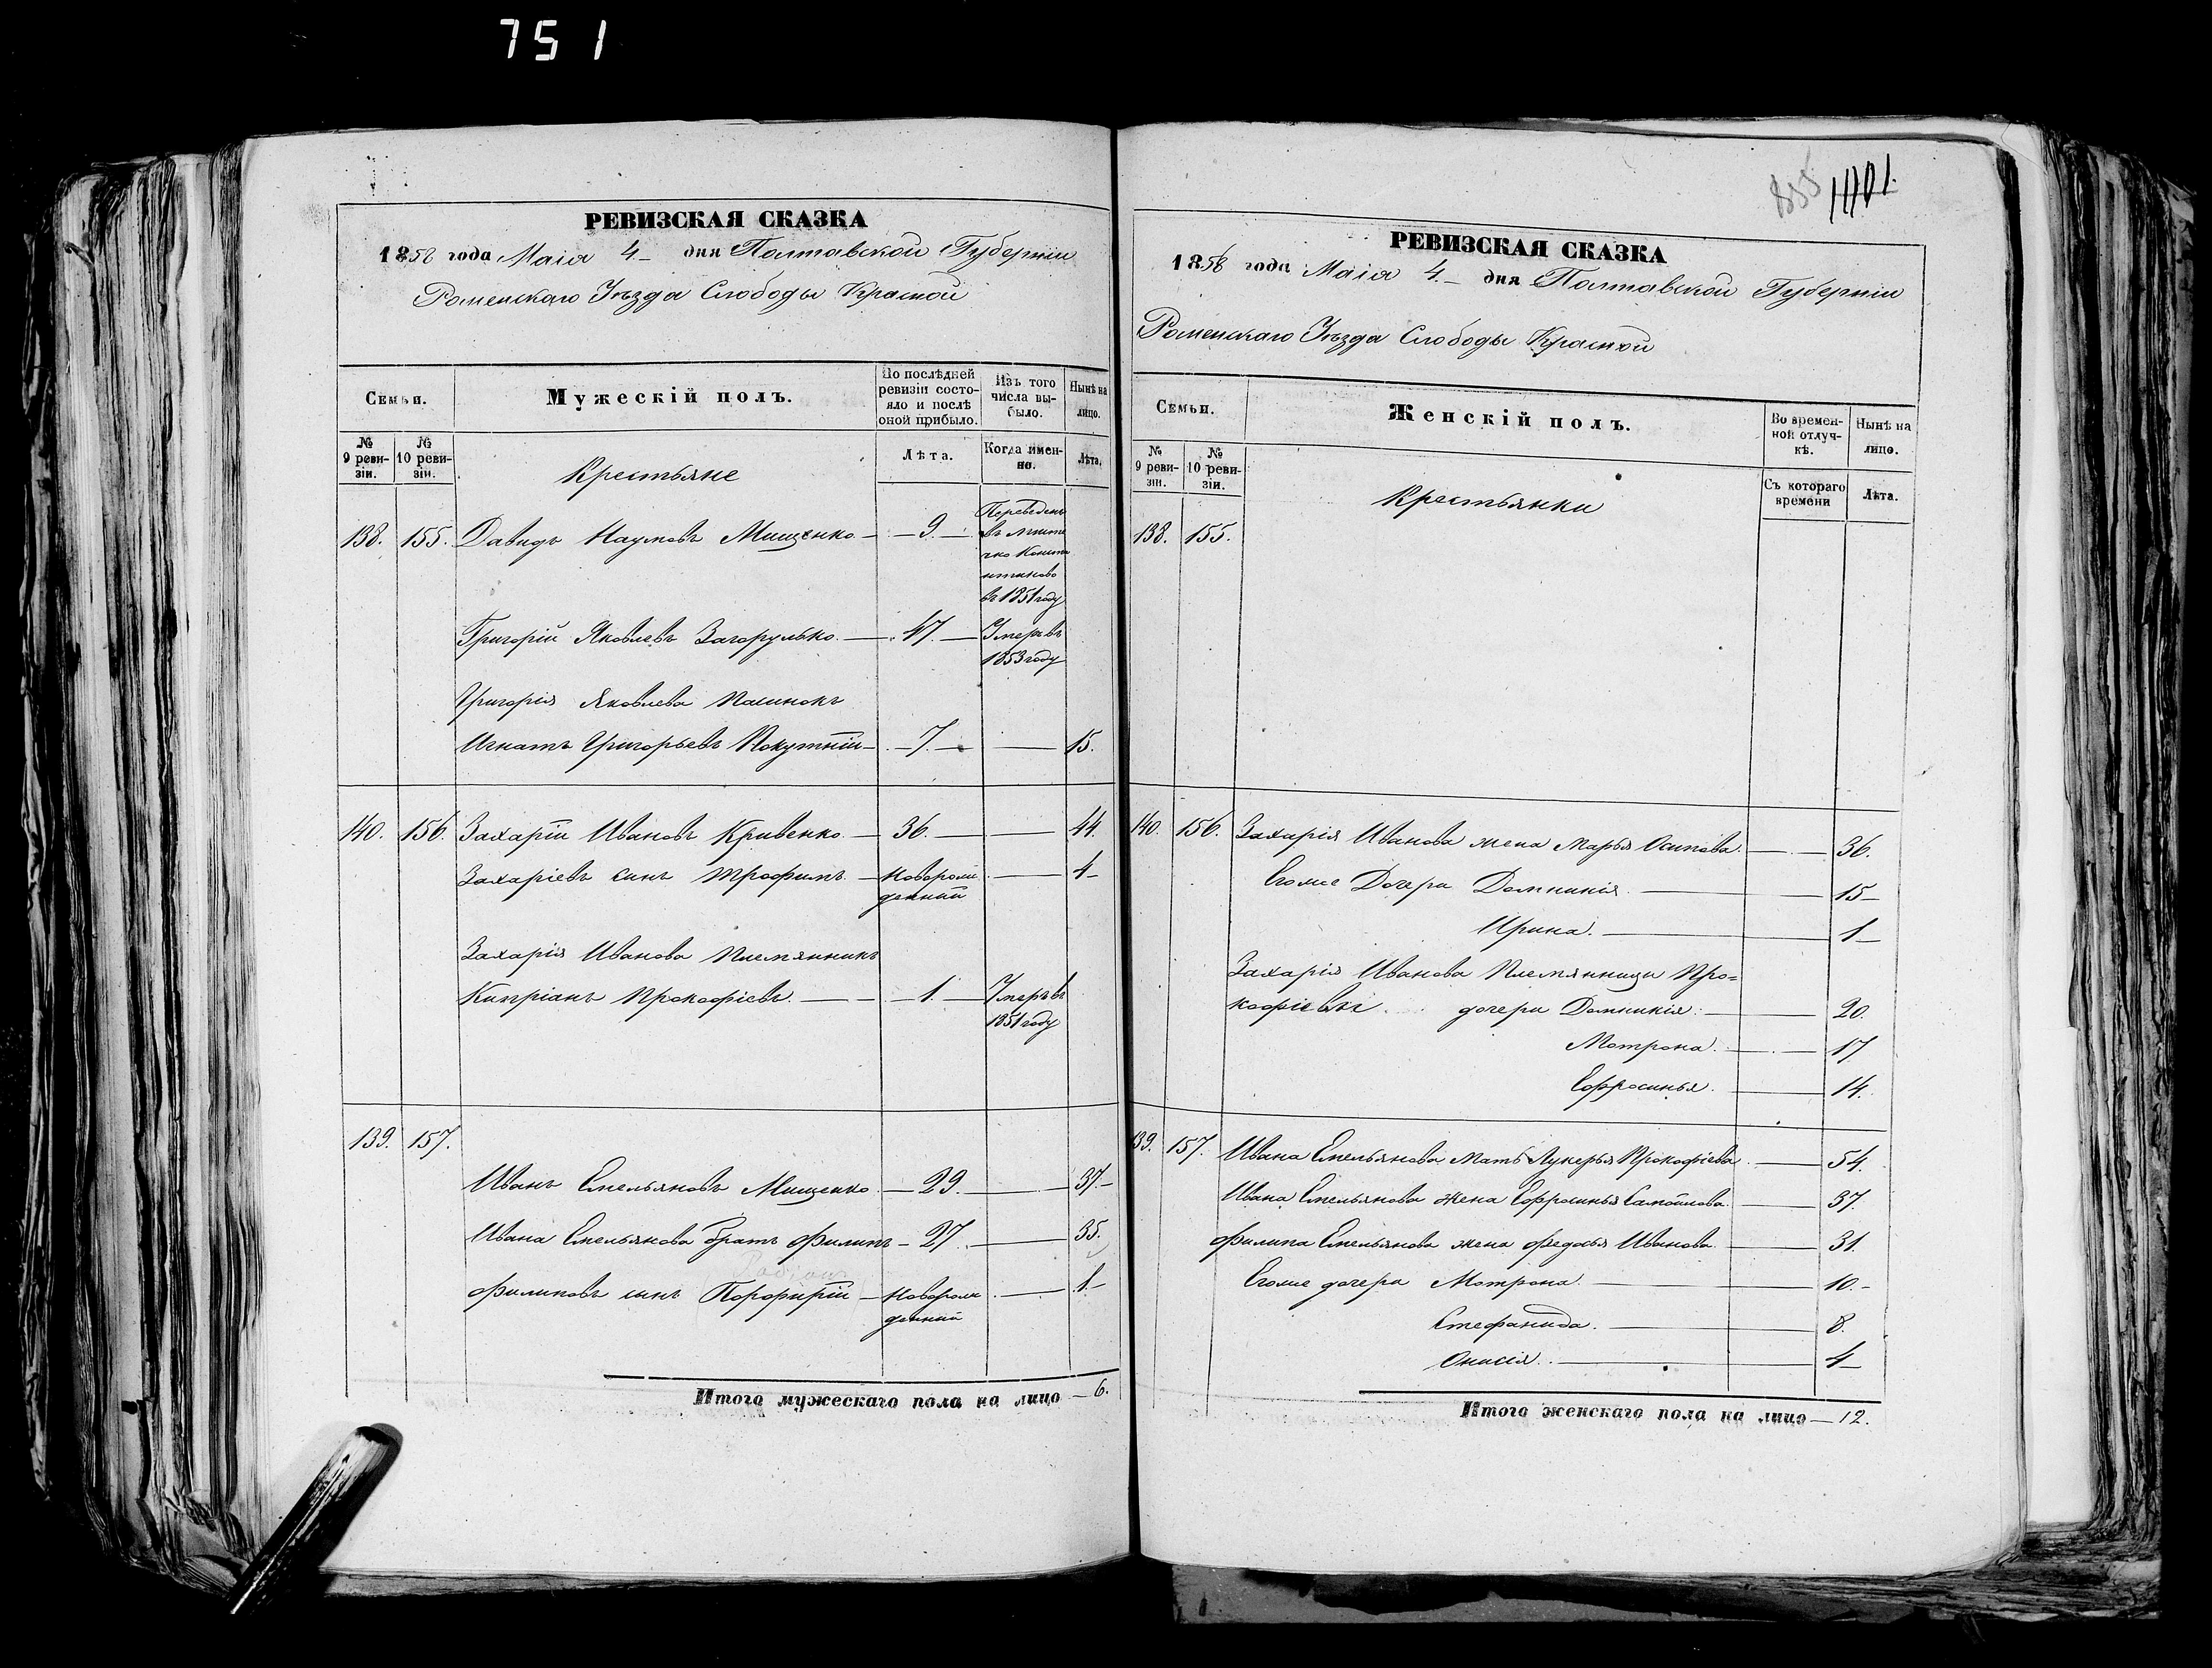 751
РЕВИЗСКАЯ СКАЗКА
1858 года Маія 4 дня Полтавской Губерніи
Роменскаго Уѣзда Слободы Красной
Семьи.
Мужескій полъ.
По послѣдней ревизіи состояло и послѣ оной прибыло.
Изъ того числа выбыло.
Нынѣ на лицо.
№ 9 ревизіи.
№ 10 ревизіи.
Крестьяне
Лѣта.
Когда именно.
Лѣта.
138. 155. Давидъ Наумовъ Мищенко — 9. — Переведенъ
въ 1851 году
Григорій Яковлевъ Загорулько. — 47. — Умеръ въ
1853 году
Григорія Яковлева Пасинокъ
Игнатъ Григорьевъ Покутній — 7. — 15.
140. 156. Захарій Ивановъ Кривенко — 36. — 44.
Захаріевъ сынъ Трофимъ — новорож
денный — 4
Захарія Иванова Племянникъ
Кипріанъ Прокофіевъ. — 1. — Умеръ въ
1851 году
139. 157.
Иванъ Емельяновъ Мищенко — 29. — 37.
Ивана Емельянова братъ Филипъ — 27 — 35.
Филиповъ сынъ Порфирій — новорож
денный — 1
Итого мужескаго пола на лицо — 6.
855 1101.
РЕВИЗСКАЯ СКАЗКА
1858 года Маія 4. дня Полтавской Губерніи
Роменскаго Уѣзда Слободы Красной
Семьи.
Женскій полъ.
Во временной отлучкѣ.
Нынѣ на лицо.
№ 9 ревизіи.
№ 10 ревизіи.
Крестьянки
Съ котораго времени
Лѣта.
138. 155.
140. 156. Захарія Иванова жена Марья Осипова. — 36.
Егоже Дочери Домникія. — 15
Ирина. — 1
Захарія Иванова Племянницы Про=
кофіевы дочери Домникія: — 20.
Мотрона. — 17
Ефросинья. — 14.
139. 157. Ивана Емельянова Мать Лукерья Прокофіева — 54.
Ивана Емельянова жена Ефросинья Самойлова. — 37.
Филипа Емельянова жена Федосья Иванова — 31.
Егоже дочери Мотрона — 10.
Стефанида. — 8.
Онисія. — 4
Итого женскаго пола на лицо — 12.